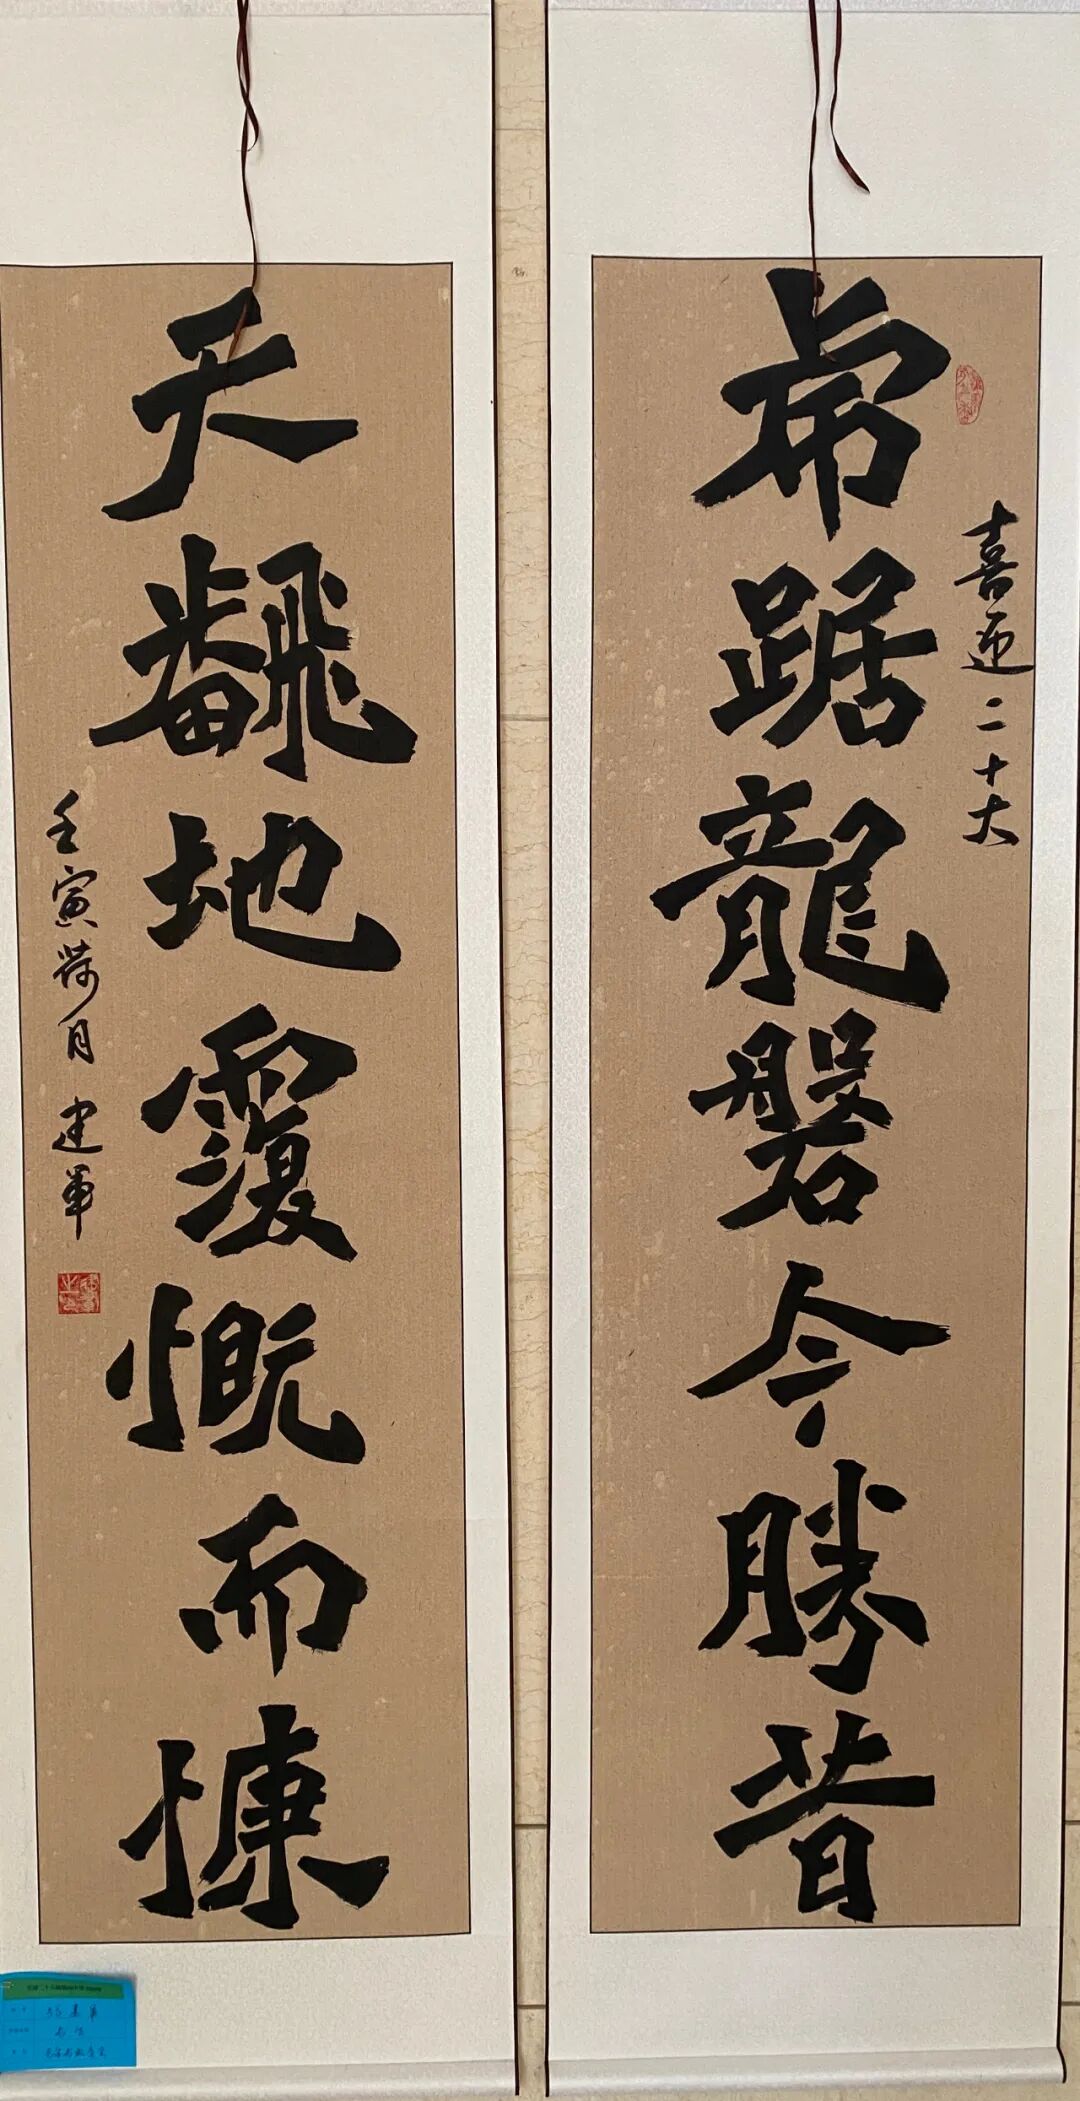 喜迎二十大
虎踞龍磐今勝昔
天翻地覆慨而慷
壬寅荷月 建軍